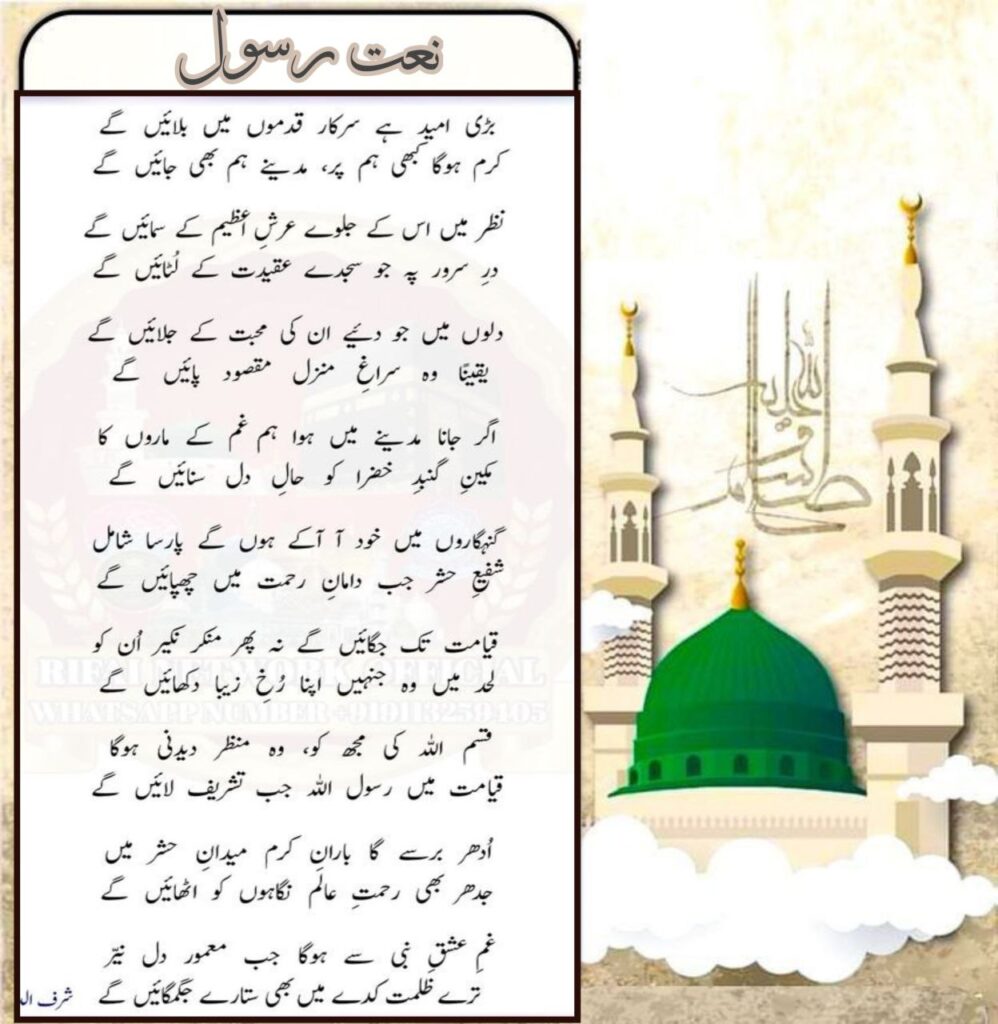 نعت رسول
بڑی امید ہے سرکار قدموں میں بلائیں گے
کرم ہوگا کبھی ہم پر، مدینے ہم بھی جائیں گے
نظر میں اس کے جلوے عرشِ اعظیم کے سمائیں گے
درِ سرور پہ جو سجدے عقیدت کے لُٹائیں گے
دلوں میں جو دئیے ان کی محبت کے جلائیں گے
یقینًا وہ سراغِ منزل مقصود پائیں گے
اگر جانا مدینے میں ہوا ہم غم کے ماروں کا
مکینِ گنبدِ خضرا کو حالِ دل سنائیں گے
گنہگاروں میں خود آ آکے ہوں گے پارسا شامل
شفیعِ حشر جب دامانِ رحمت میں چھپائیں گے
قیامت تک جگائیں گے نہ پھر منکر نکیر اُن کو
لحد میں وہ جنہیں اپنا رُخِ زیبا دکھائیں گے
RIFAI NETWORK OFFICIAL
WHATSAPP NUMBER +919113259405
قسم اللہ کی مجھ کو، وہ منظر دیدنی ہوگا
قیامت میں رسول اللہ جب تشریف لائیں گے
اُدھر برسے گا بارانِ کرم میدانِ حشر میں
جدھر بھی رحمتِ عالَم نگاہوں کو اٹھائیں گے
غمِ عشقِ نبی سے ہوگا جب معمور دل نیّر
ترے ظلمت کدے میں بھی ستارے جگمگائیں گے
شرف
صلى الله عليه وسلم